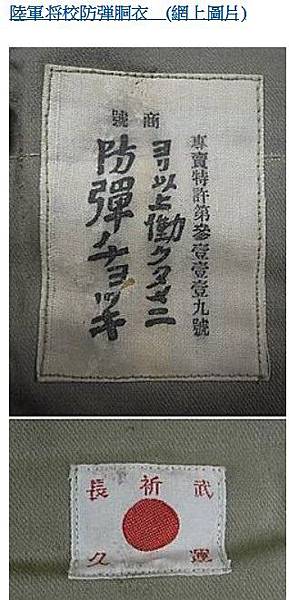 陸軍将校防彈胴衣 (網上圖片)
商號
專賣特許第參壹壹壹九號
ヨリ以上働クタメニ
防彈チョッキ
祈
武運
長久